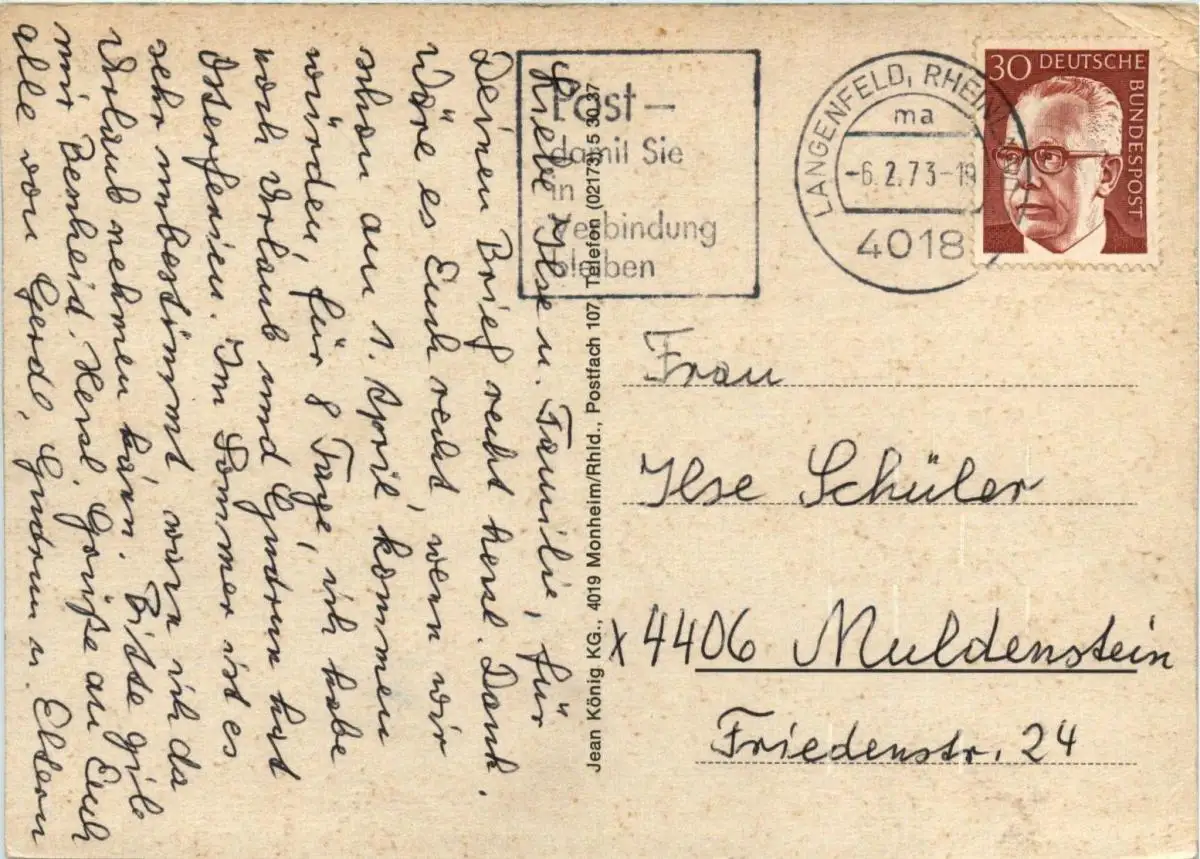 Liebe Ilse u. Familie, für
Deinen Brief recht herzl. Dank.
Wäre es Euch recht, wenn wir
schon am 1. April kommen
würden, für 8 Tage, ich habe
noch Urlaub und Gudrun hat
Osterferien. Im Sommer ist es
sehr unbestimmt wann ich da
Urlaub nehmen kann. Bitte gib
mir Bescheid. Herzl. Grüße an Euch
alle von Gerd, Gudrun u. Eltern
Jean König KG., 4019 Monheim/Rhld., Postfach 107, Telefon (02173) 5 30 37
Post –
damit Sie
in
Verbindung
bleiben
LANGENFELD, RHEINL
ma
-6.2.73-19
4018
30 DEUTSCHE
BUNDESPOST
Frau
Ilse Schüler
X4406 Muldenstein
Friedenstr. 24